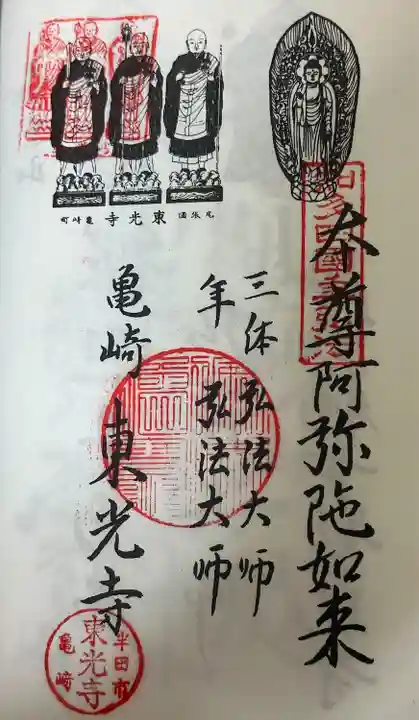 本尊阿弥陀如来
三体弘法大師
年弘法大師
尾張国 東光寺 亀崎町
亀崎東光寺
半田市
東光寺
亀崎